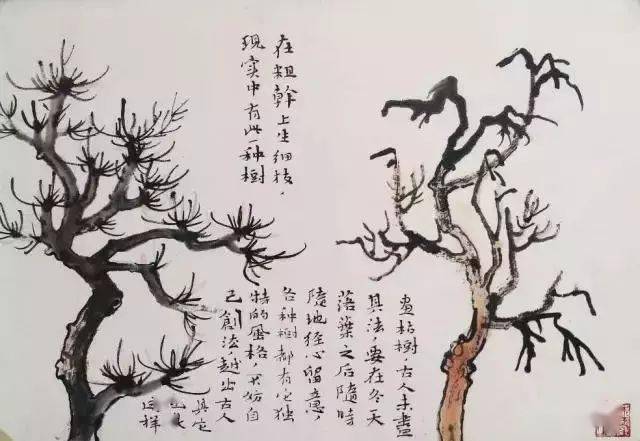 在粗幹上生細枝，
現实中有此一种樹
畫枯樹古人未盡
其法，要在冬天
落葉之后隨時
隨地经心留意，
各种樹都有它独
特的風格，不妨自
己創法，越出古人
这样